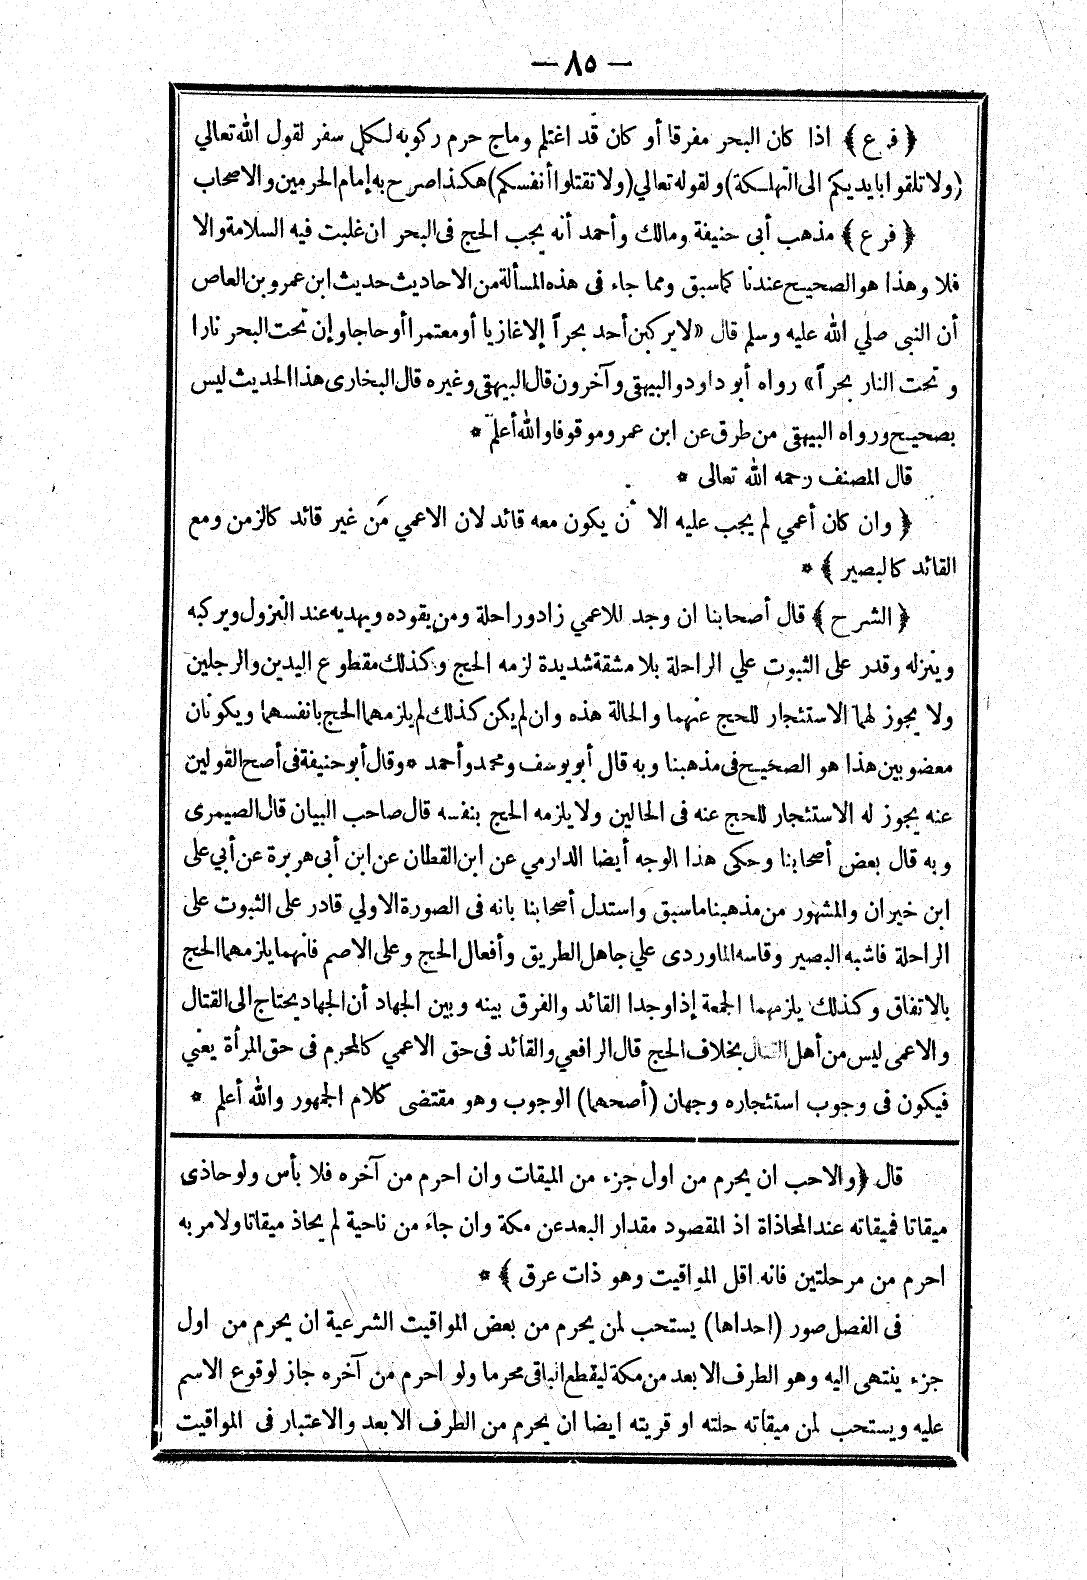 — ٨٥ —
﴿ فرع ﴾ اذا كان البحر مفرقا أو كان قد اغتلم وماج حرم ركوبه لكل سفر لقول الله تعالي
(ولا تلقوا بايديكم الى التهلكة) ولقوله تعالي (ولا تقتلوا أنفسكم) هكذا صرح به إمام الحرمين والاصحاب
﴿ فرع ﴾ مذهب أبى حنيفة ومالك وأحمد أنه يجب الحج فى البحر ان غلبت فيه السلامة والا
فلا وهذا هو الصحيح عندنا كما سبق ومما جاء فى هذه المسألة من الاحاديث حديث ابن عمرو بن العاص
أن النبى صلي الله عليه وسلم قال «لا يركبن أحد بحراً إلا غازيا أو معتمرا أو حاجا وإن تحت البحر نارا
وتحت النار بحراً» رواه أبو داود والبيهقى وآخرون قال البيهقى وغيره قال البخارى هذا الحديث ليس
بصحيح ورواه البيهقى من طرق عن ابن عمرو موقوفا والله أعلم *
قال المصنف رحمه الله تعالى *
﴿ وان كان أعمي لم يجب عليه الا أن يكون معه قائد لان الاعمي من غير قائد كالزمن ومع
القائد كالبصير ﴾ *
﴿ الشرح ﴾ قال أصحابنا ان وجد للاعمي زاد وراحلة ومن يقوده ويهديه عند النزول ويركبه
وينزله وقدر على الثبوت علي الراحلة بلا مشقة شديدة لزمه الحج وكذلك مقطوع اليدين والرجلين
ولا يجوز لهما الاستئجار للحج عنهما والحالة هذه وان لم يكن كذلك لم يلزمهما الحج بانفسهما ويكونان
معضوبين هذا هو الصحيح فى مذهبنا وبه قال أبو يوسف ومحمد وأحمد * وقال أبو حنيفة فى أصح القولين
عنه يجوز له الاستئجار للحج عنه فى الحالين ولا يلزمه الحج بنفسه قال صاحب البيان قال الصيمرى
وبه قال بعض أصحابنا وحكى هذا الوجه أيضا الدارمي عن ابن القطان عن ابن أبى هريرة عن أبي على
ابن خيران والمشهور من مذهبنا ما سبق واستدل أصحابنا بانه فى الصورة الاولي قادر على الثبوت على
الراحلة فاشبه البصير وقاسه الماوردى علي جاهل الطريق وأفعال الحج وعلى الاصم فانهما يلزمهما الحج
بالاتفاق وكذلك يلزمهما الجمعة إذا وجدا القائد والفرق بينه وبين الجهاد أن الجهاد يحتاج الى القتال
والاعمى ليس من أهل القتال بخلاف الحج قال الرافعي والقائد فى حق الاعمي كالمحرم فى حق المرأة يعني
فيكون فى وجوب استئجاره وجهان (أصحهما) الوجوب وهو مقتضى كلام الجمهور والله أعلم *
قال ﴿والاحب ان يحرم من اول جزء من الميقات وان احرم من آخره فلا بأس ولو حاذى
ميقاتا فميقاته عند المحاذاة اذ المقصود مقدار البعد عن مكة وان جاء من ناحية لم يحاذ ميقاتا ولا مر به
احرم من مرحلتين فانه اقل المواقيت وهو ذات عرق ﴾ *
فى الفصل صور (احداها) يستحب لمن يحرم من بعض المواقيت الشرعية ان يحرم من اول
جزء ينتهى اليه وهو الطرف الابعد من مكة ليقطع الباقى محرما ولو احرم من آخره جاز لوقوع الاسم
عليه ويستحب لمن ميقاته حلته او قريته ايضا ان يحرم من الطرف الابعد والاعتبار فى المواقيت